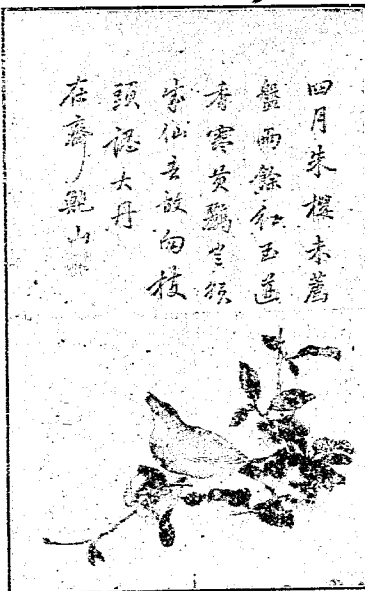 四月朱櫻未薦
盤雨餘紅玉
香寒黄鸝豈領
仙去故向枝
頭認大丹
在齋